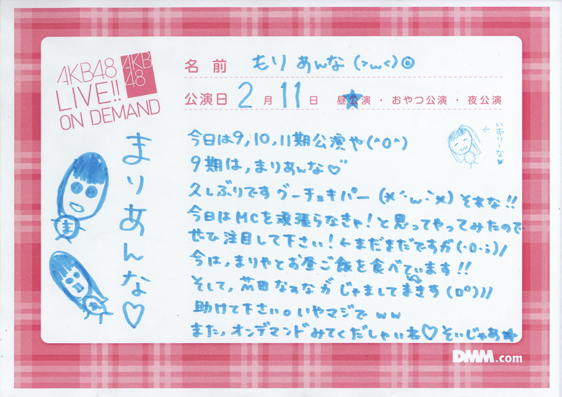 AKB48
LIVE!!
ON DEMAND
AKB
48
名前 もり あんな (>ω<)◎
公演日 2月11日 昼公演・おやつ公演・夜公演
まりあんな♡
いもリーな
今日は9,10,11期公演や(^o^)
9期は,まりあんな♡
久しぶりです グーチョキパー (x´・ω・`x) それな!!
今日はMCを頑張らなきゃ!と思ってやってみたので
ぜひ注目して下さい!←まだまだですが(・o・;)/
今は,まりやとお昼ご飯を食べています!!
そして,茂田ななながじゃましてきます(ﾛ°)//
助けて下さい。いやマジでww
また,オンデマンドみてくだしゃいね♡そいじゃあ★
DMM.com